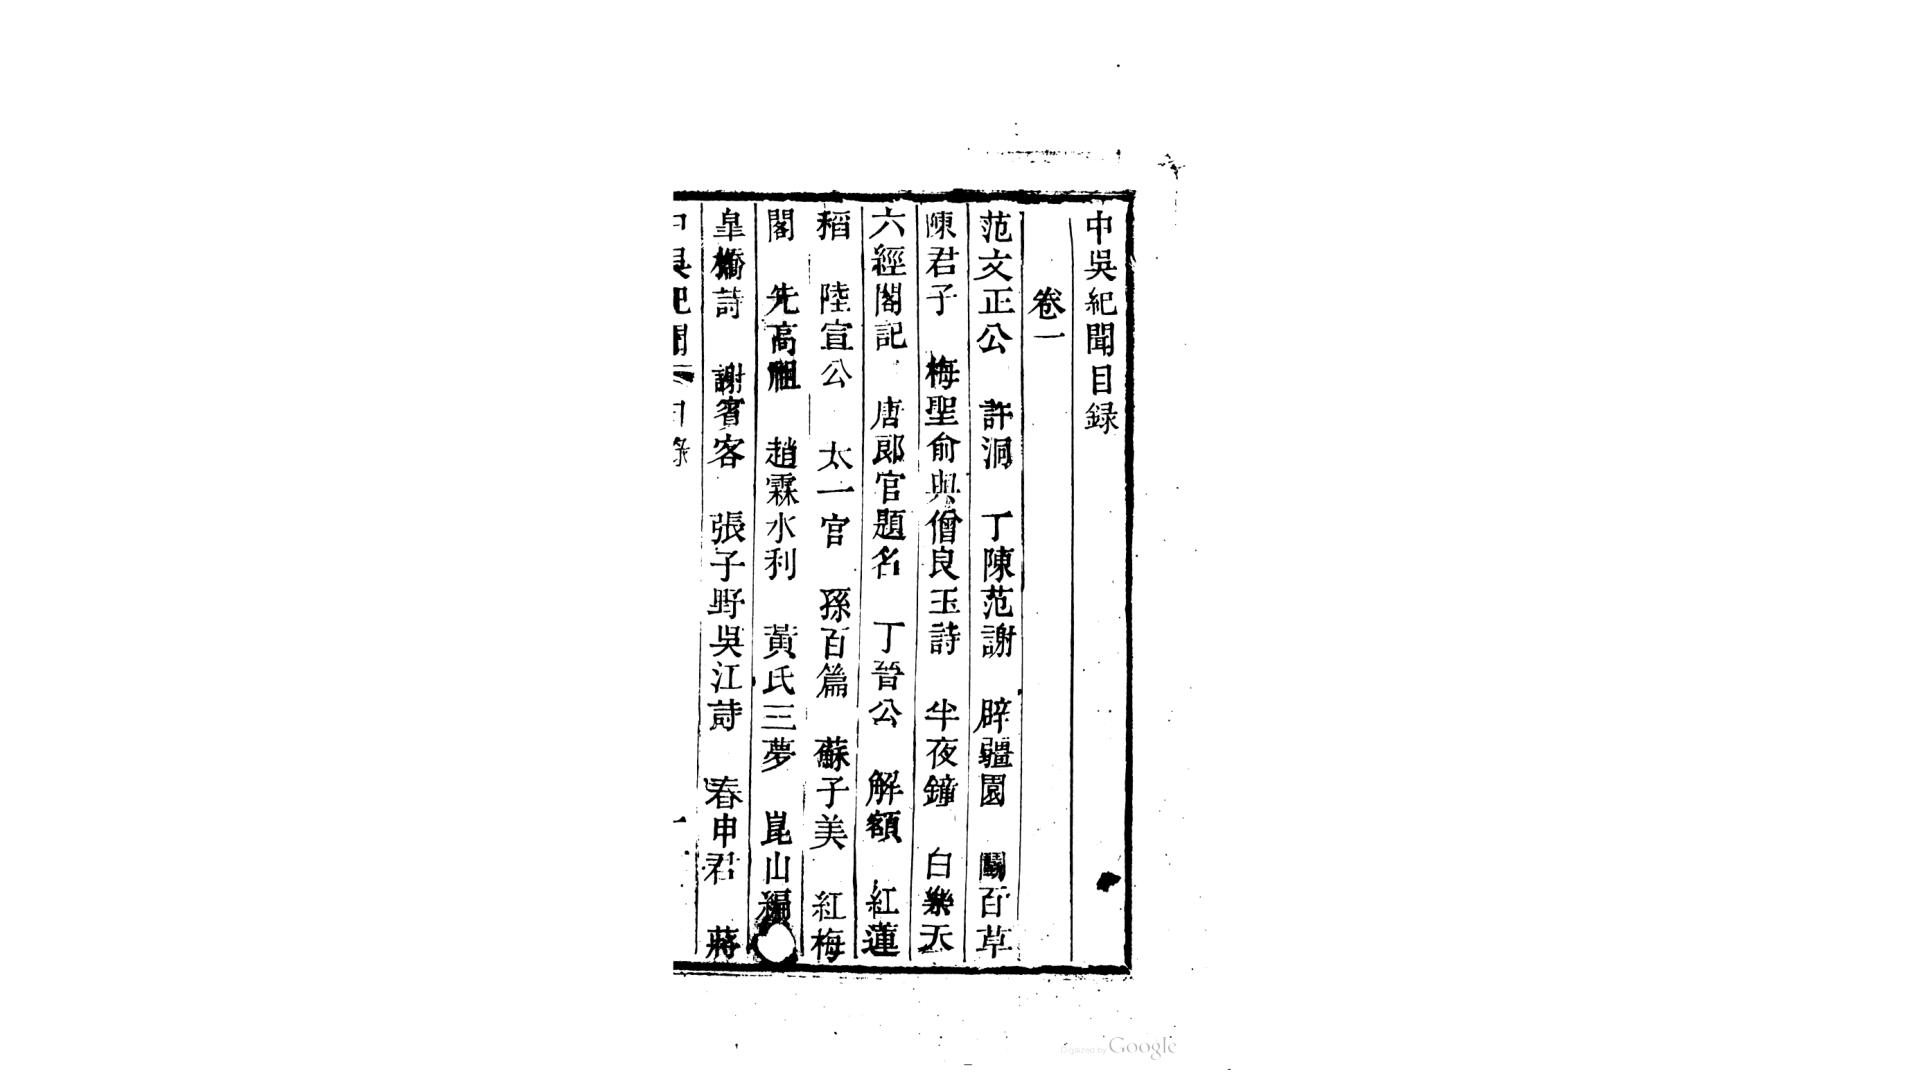 中吳紀聞目録
卷一
范文正公 許洞 丁陳范謝 辟疆園 鬭百草
陳君子 梅聖俞與僧良玉詩 半夜鐘 白樂天
六經閣記 唐郎官題名 丁晉公 解額 紅蓮
稻 陸宣公 太一宫 孫百篇 蘇子美 紅梅
閣 先高祖 趙霖水利 黃氏三夢 崑山編
皐橋詩 謝賓客 張子野吳江詩 春申君 蔣
中吳紀聞 目錄 一
Digitized by Google